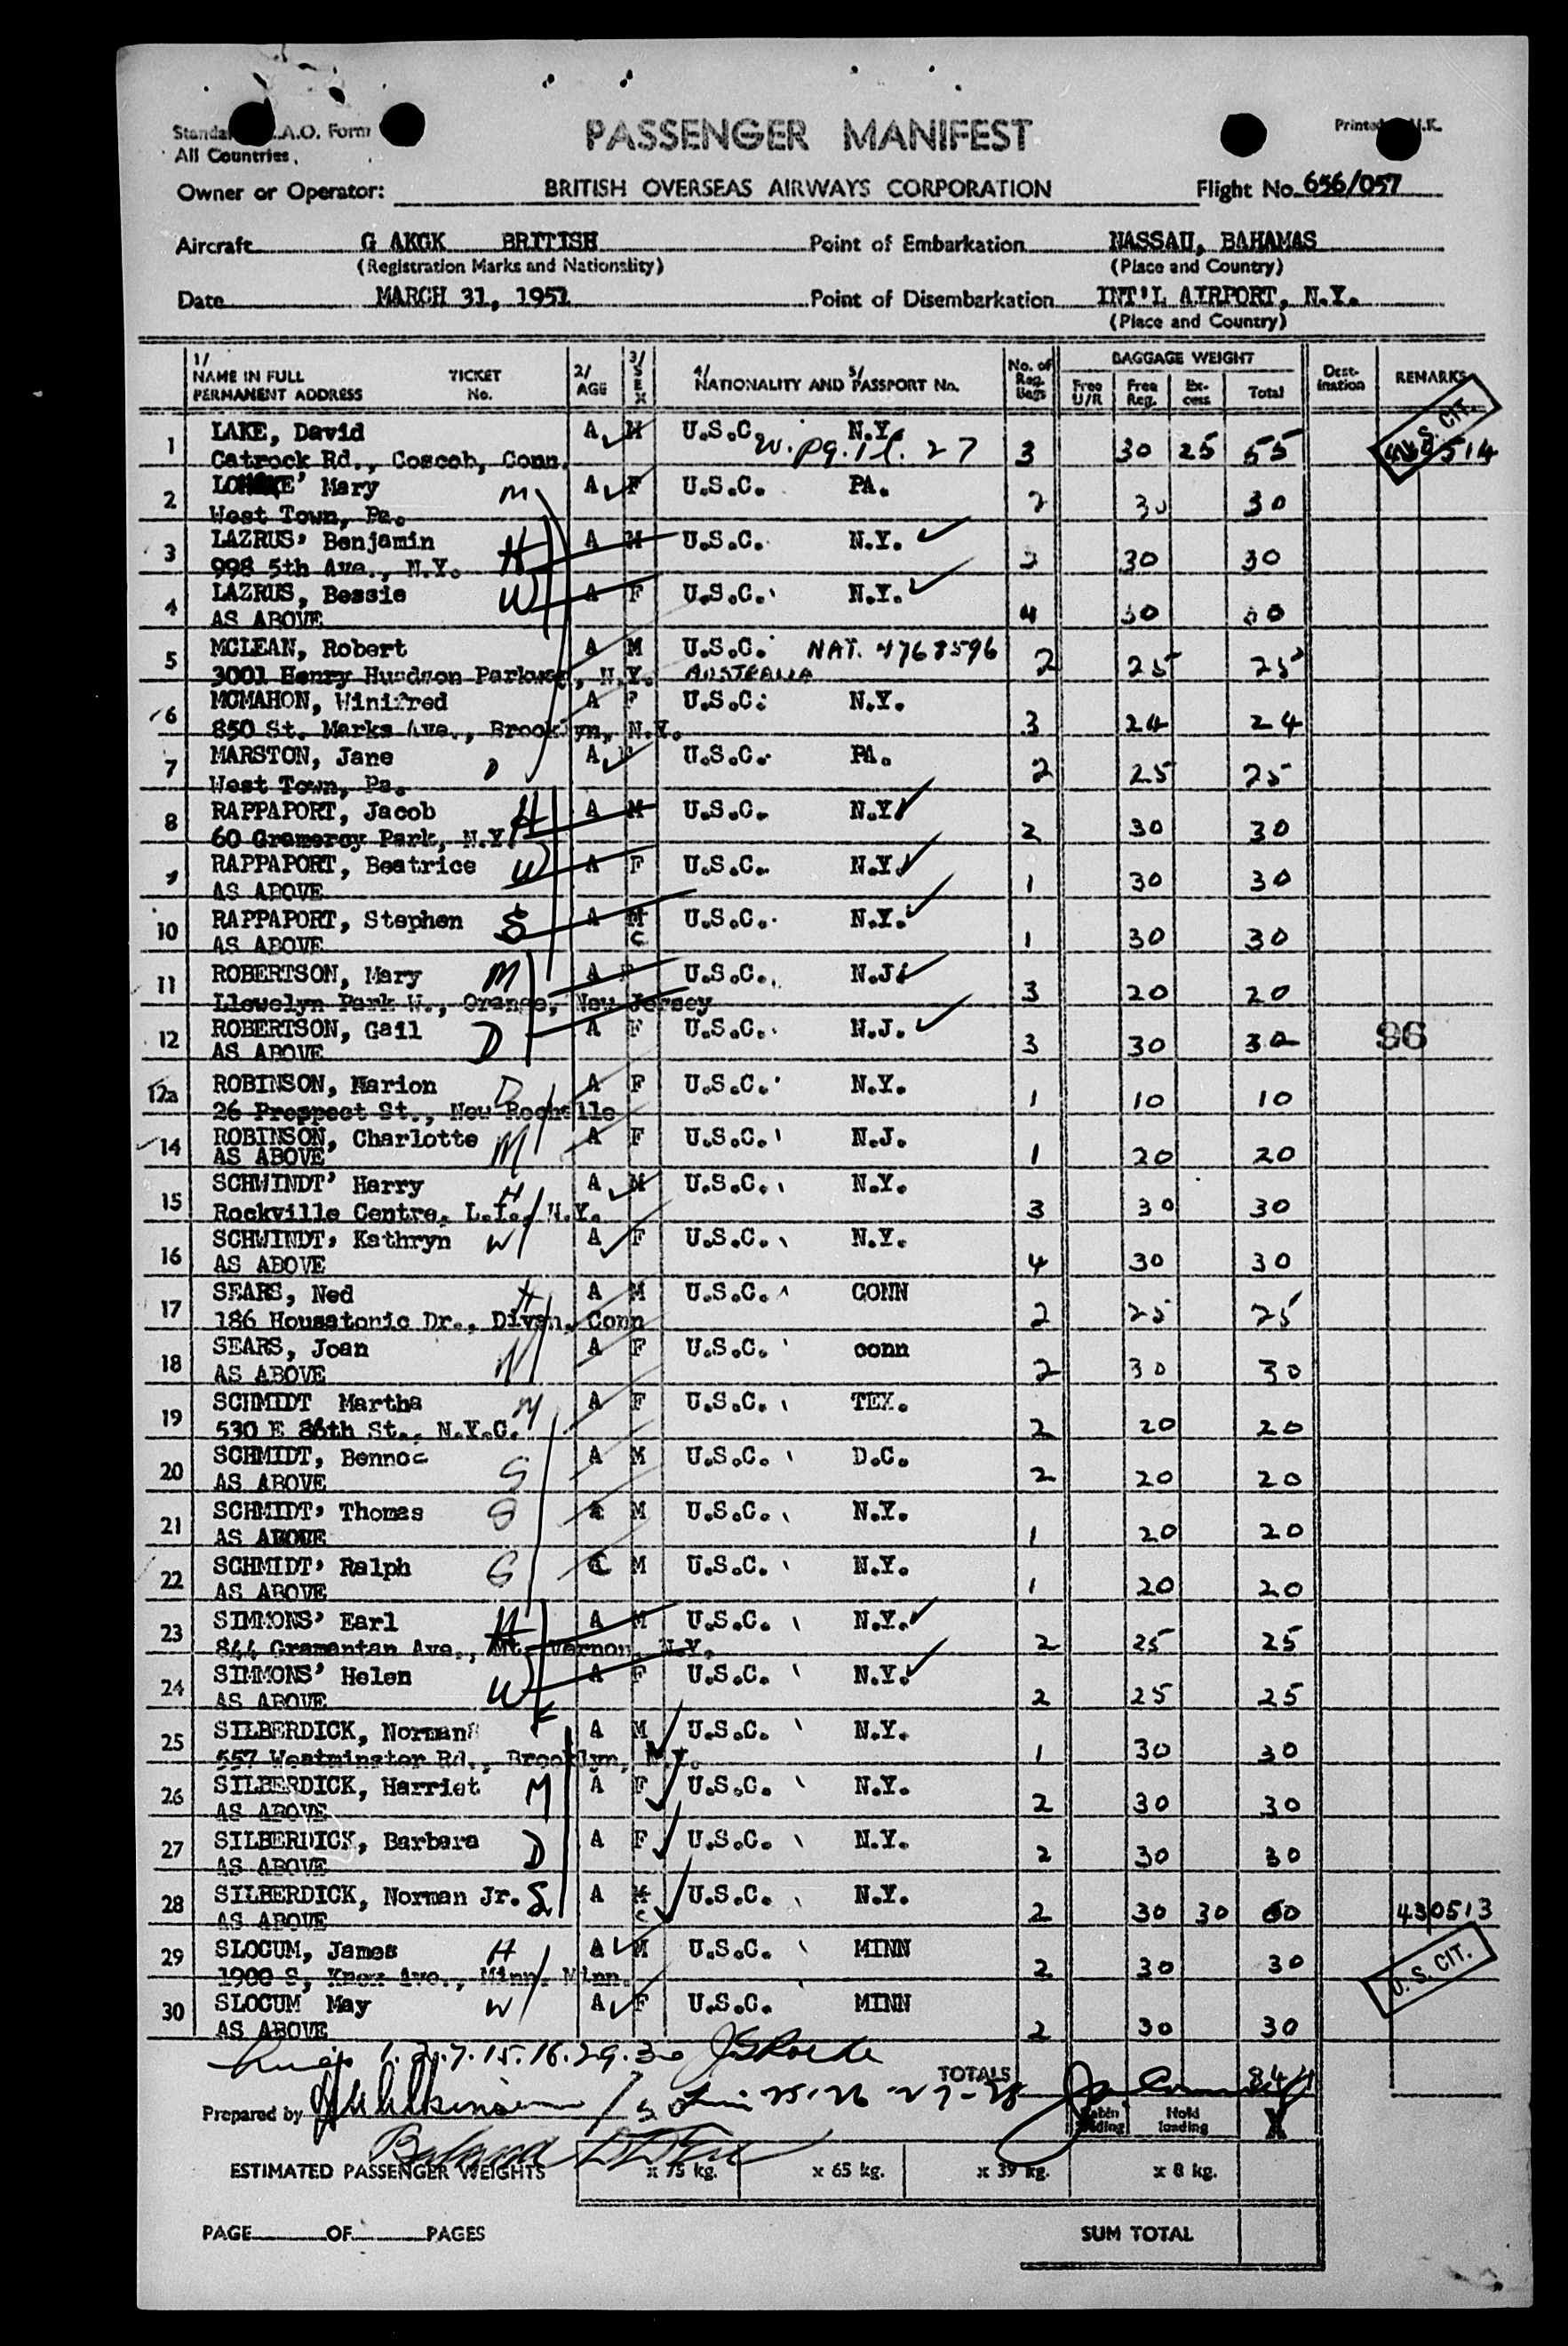 PASSENGER MANIFEST
All Countries
Owner or Operator: BRITISH OVERSEAS AIRWAYS CORPORATION Flight No. 656/057
Aircraft G AKGK BRITISH Point of Embarkation NASSAU, BAHAMAS
(Registration Marks and Nationality) (Place and Country)
Date MARCH 31, 1951 Point of Disembarkation INT'L AIRPORT, N.Y.
(Place and Country)
1/ NAME IN FULL PERMANENT ADDRESS TICKET No. 2/ AGE 3/ SEX 4/ NATIONALITY AND 5/ PASSPORT No. No. of Reg. Bags BAGGAGE WEIGHT Free U/R Free Reg. Ex-cess Total Dest-ination REMARKS
1 LAKE, David A M U.S.C. N.Y. 3 30 25 55 U.S. CIT.
Catrock Rd., Coscob, Conn.
2 Mary M A F U.S.C. PA. 2 30 30
West Town, Pa.
3 LAZRUS, Benjamin H A M U.S.C. N.Y. 2 30 30
998 5th Ave., N.Y.
4 LAZRUS, Bessie W A F U.S.C. N.Y. 4 30 30
AS ABOVE
5 MCLEAN, Robert A M U.S.C. NAT. 4768596 2 25 25
3001 Henry Hundson Parkway, N.Y. AUSTRALIA
6 MCMAHON, Winifred A F U.S.C. N.Y. 3 24 24
850 St. Marks Ave., Brooklyn, N.Y.
7 MARSTON, Jane D A F U.S.C. PA. 2 25 25
West Town, Pa.
8 RAPPAPORT, Jacob H A M U.S.C. N.Y. 2 30 30
60 Gramercy Park, N.Y.
9 RAPPAPORT, Beatrice W A F U.S.C. N.Y. 1 30 30
AS ABOVE
10 RAPPAPORT, Stephen S A M C U.S.C. N.Y. 1 30 30
AS ABOVE
11 ROBERTSON, Mary M A F U.S.C. N.J. 3 20 20
Llewelyn Park W., Orange, New Jersey
12 ROBERTSON, Gail D A F U.S.C. N.J. 3 30 30 96
AS ABOVE
12a ROBINSON, Marion D A F U.S.C. N.Y. 1 10 10
26 Prospect St., New Rochelle
14 ROBINSON, Charlotte M A F U.S.C. N.J. 1 20 20
AS ABOVE
15 SCHWINDT, Harry H A M U.S.C. N.Y. 3 30 30
Rockville Centre, L.I., N.Y.
16 SCHWINDT, Kathryn W A F U.S.C. N.Y. 4 30 30
AS ABOVE
17 SEARS, Ned H A M U.S.C. CONN 2 25 25
186 Housatonic Dr., Conn
18 SEARS, Joan W A F U.S.C. conn 2 30 30
AS ABOVE
19 SCHMIDT Martha M A F U.S.C. TEX. 2 20 20
530 E 86th St., N.Y.C.
20 SCHMIDT, Benno S A M U.S.C. D.C. 2 20 20
AS ABOVE
21 SCHMIDT, Thomas S M U.S.C. N.Y. 1 20 20
AS ABOVE
22 SCHMIDT, Ralph S C M U.S.C. N.Y. 1 20 20
AS ABOVE
23 SIMMONS, Earl H A M U.S.C. N.Y. 2 25 25
844 Gramantan Ave., Mt. Vernon, N.Y.
24 SIMMONS, Helen W A F U.S.C. N.Y. 2 25 25
AS ABOVE
25 SILBERDICK, Norman A M U.S.C. N.Y. 1 30 30
557 Westminster Rd., Brooklyn, N.Y.
26 SILBERDICK, Harriet M A F U.S.C. N.Y. 2 30 30
AS ABOVE
27 SILBERDICK, Barbara D A F U.S.C. N.Y. 2 30 30
AS ABOVE
28 SILBERDICK, Norman Jr. S A M C U.S.C. N.Y. 2 30 30 60 430513
AS ABOVE
29 SLOCUM, James H A M U.S.C. MINN 2 30 30 U.S. CIT.
1900 S, Knox Ave., Minn. Minn.
30 SLOCUM May W A F U.S.C. MINN 2 30 30
AS ABOVE
1. 2. 7. 15. 16. 29. 30
TOTALS
Prepared by 25-26-27-28 Cabin loading Hold loading X
ESTIMATED PASSENGER WEIGHTS x 75 kg. x 65 kg. x 39 kg. x 8 kg.
PAGE OF PAGES SUM TOTAL